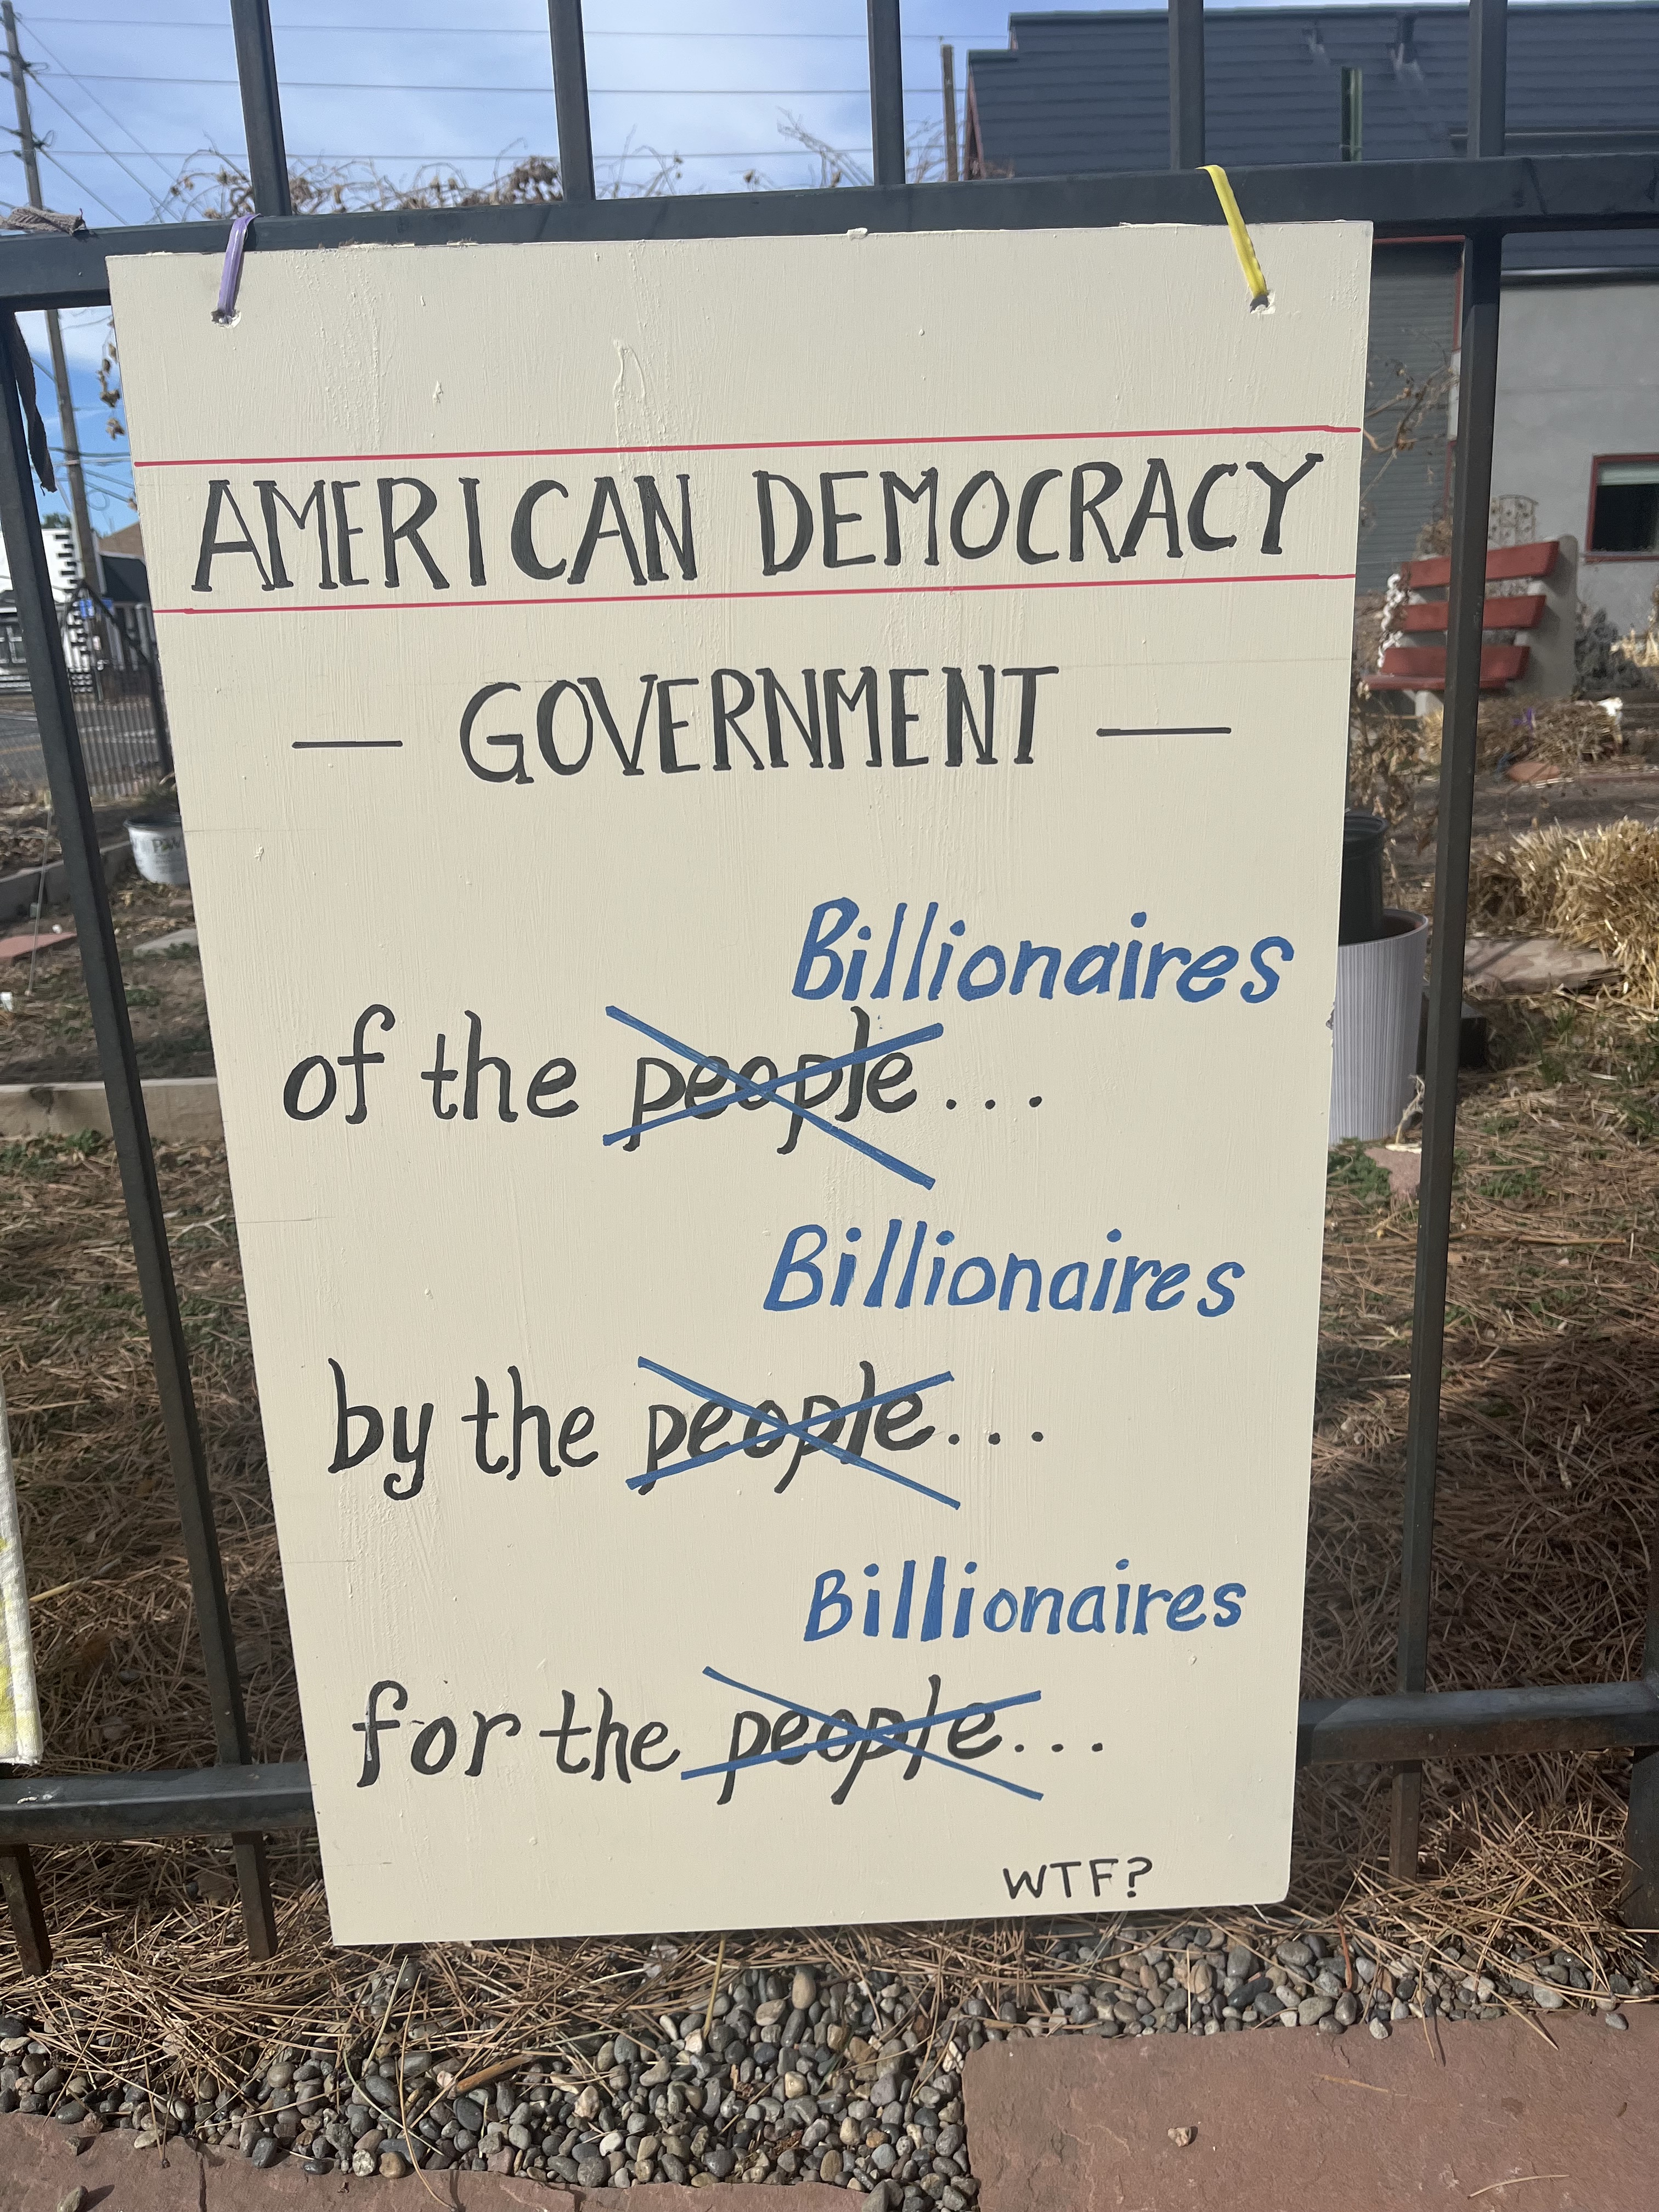 AMERICAN DEMOCRACY
— GOVERNMENT —
Billionaires
of the people...
Billionaires
by the people...
Billionaires
for the people...
WTF?